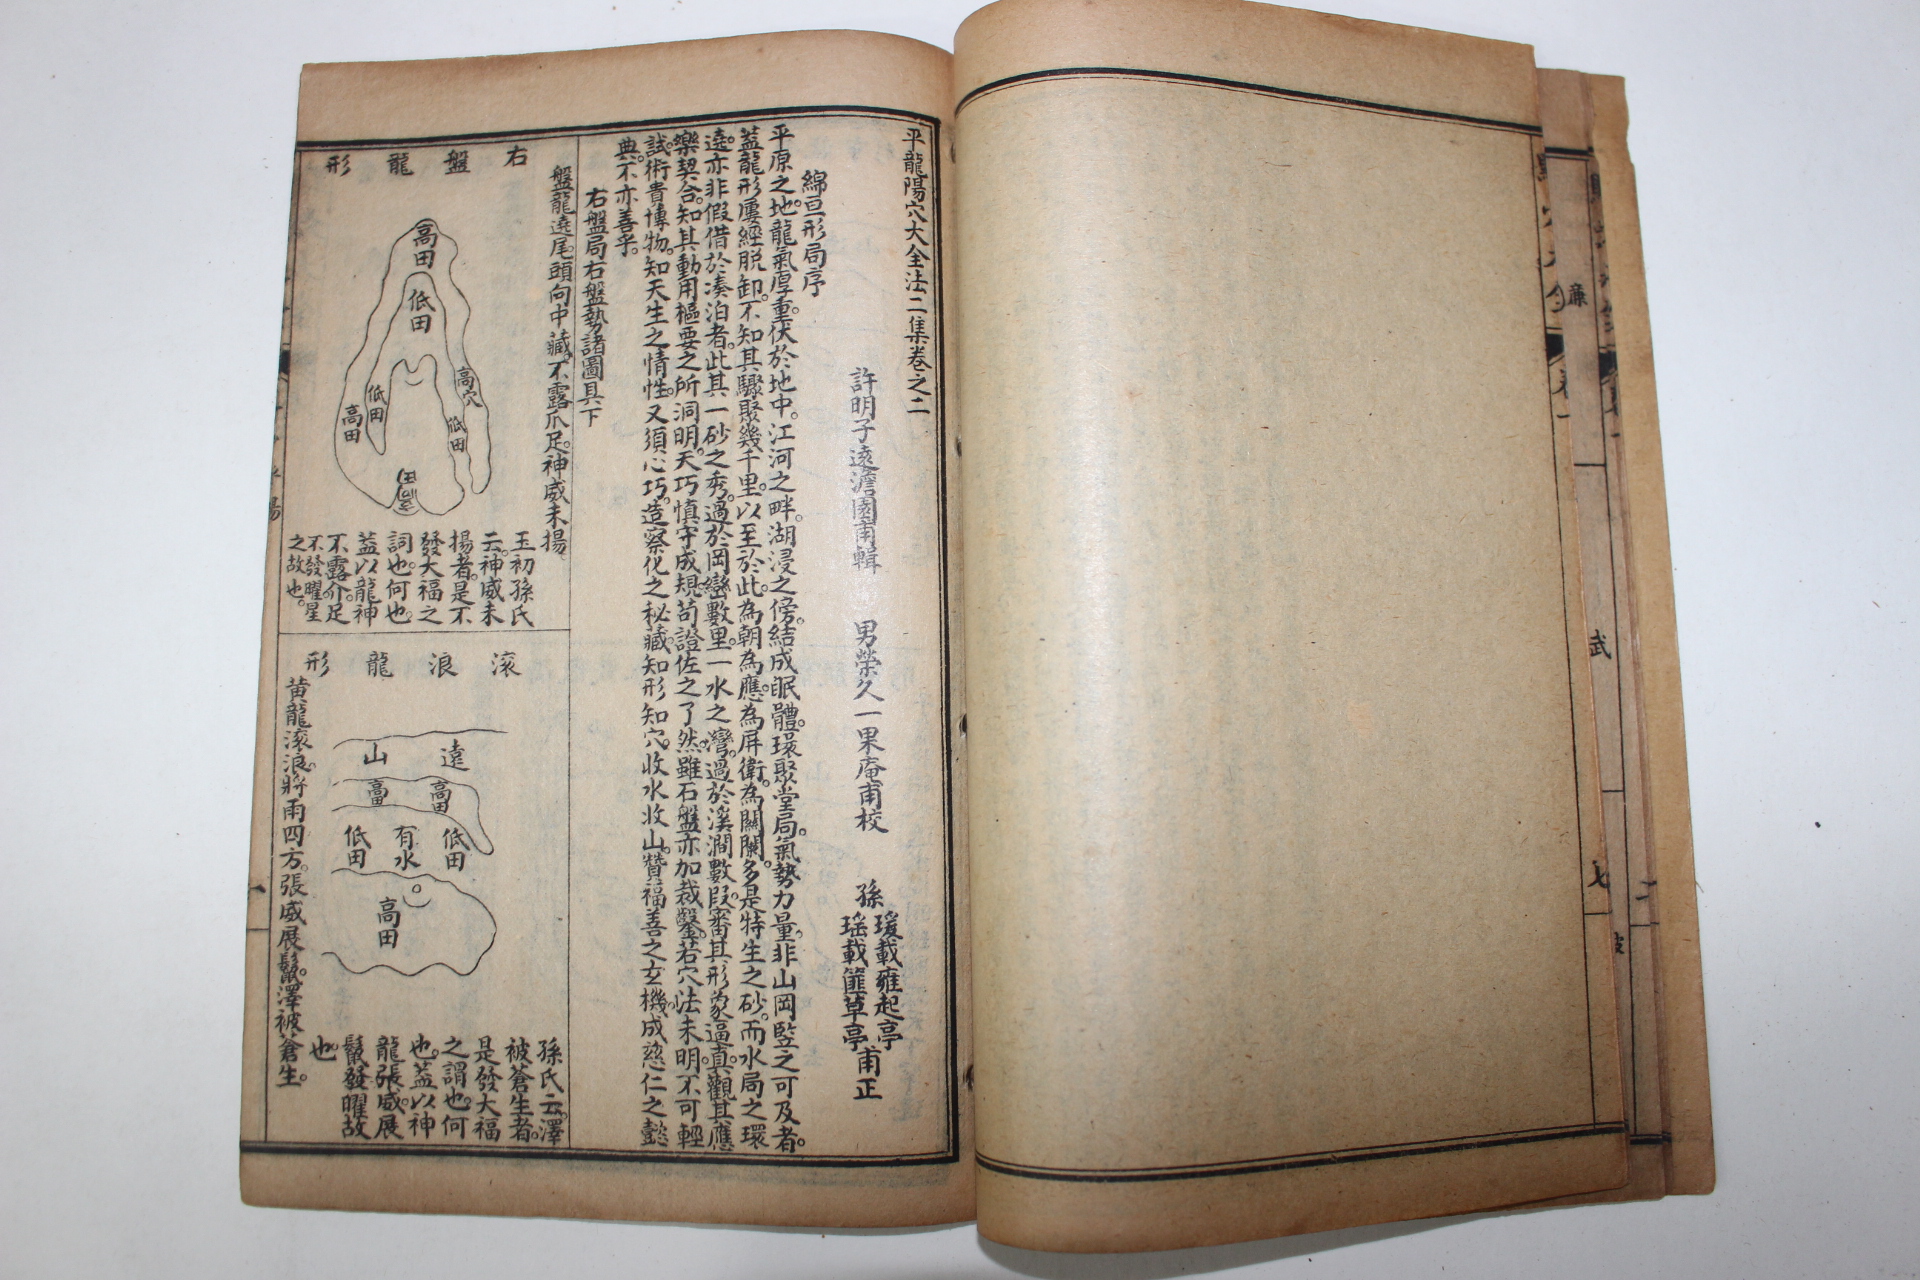 平龍陽穴大全法二集卷之二
許明子遠澹園甫輯　男榮久一果庵甫校　孫瑗載雍起亭
瑤載篚草亭甫正
綿亘形局序
平原之地。龍氣厚重。伏於地中。江河之畔。湖浸之傍。結成眠體。環聚堂局。氣勢力量。非山岡監之可及者。
蓋龍形屢經脱卸。不知其驟聚幾千里。以至於此。為朝為應。為屏衛。為關闌。多是特生之砂。而水局之環
遶。亦非假借於湊泊者。此其一砂之秀。過於岡巒數里。一水之灣。過於溪澗數段。審其形象逼真。觀其應
樂契合。知其動用樞要之所洞明。天巧慎守成規。苟證佐之了然。雖石盤亦加裁鑿。若穴法未明。不可輕
試。術貴博物。知天生之情性。又須心巧。造察化之秘藏。知形知穴。收水收山。贊福善之玄機。成慈仁之懿
典。不亦善乎。
右盤局右盤勢諸圖具下
盤龍遶尾頭向中藏。不露爪足。神威未揚。
右盤龍形
高田
低田
高穴
低田
低田
高田
玉初孫氏
云。神威未
揚者。是不
發大福之
詞也。何也
蓋以龍神
不露介足
不發曜星
之故也。
滾浪龍形
遠山
高田
高田
低田
有水
低田
高田
黄龍滚浪。將雨四方。張威展鬣。澤被蒼生。
孫氏云。澤
被蒼生者。
是發大福
之謂也。何
也。蓋以神
龍張威。展
鬣發曜故
也。